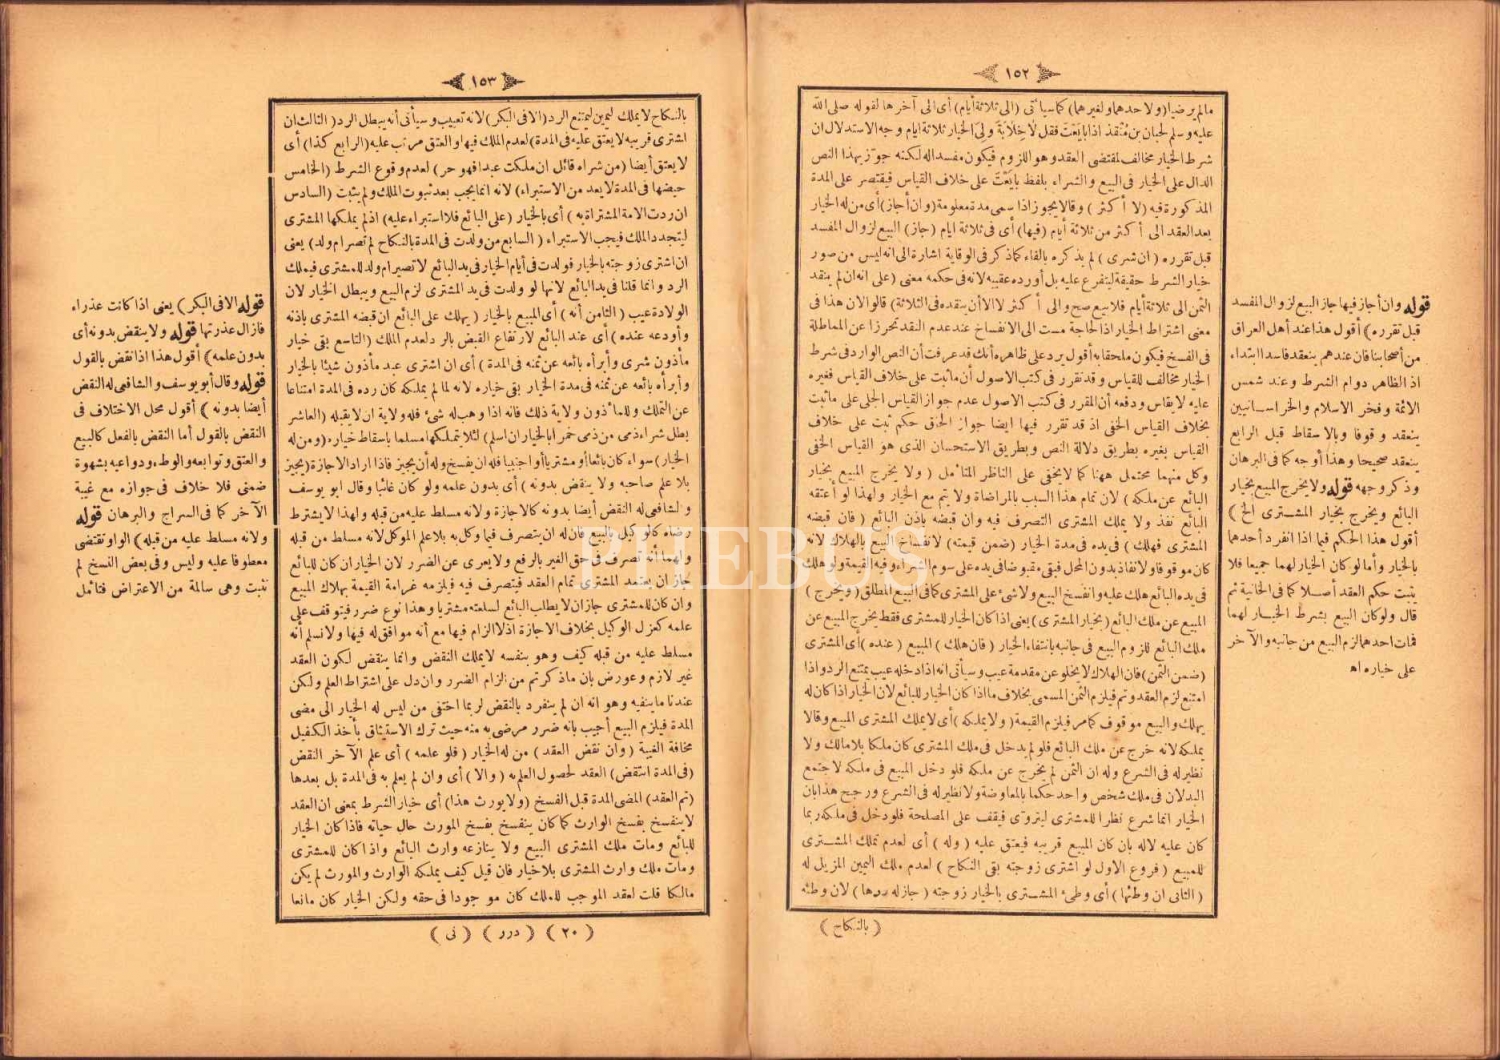 ١٥٢
مالم يرضيا (ولاحدهما ولغيرهما) كما سيأتى (الى ثلاثة أيام) أى الى آخرها لقوله صلى الله
عليه وسلم لحبان بن منقذ اذا بايعت فقل لا خلابة ولى الخيار ثلاثة ايام وجه الاستدلال ان
شرط الخيار مخالف لمقتضى العقد وهو اللزوم فيكون مفسدا له لكنه جوّز بهذا النص
الدال على الخيار فى البيع والشراء بلفظ بايعت على خلاف القياس فيقتصر على المدة
المذكورة فيه (لا أكثر) وقالا يجوز اذا سمى مدة معلومة (وان أجاز) أى من له الخيار
بعد العقد الى أكثر من ثلاثة أيام (فيها) أى فى ثلاثة ايام (جاز) البيع لزوال المفسد
قبل تقرره (ان شرى) لم يذكره بالفاء كما ذكر فى الوقاية اشارة الى انه ليس من صور
خيار الشرط حقيقة ليتفرع عليه بل أورده عقيبه لانه فى حكمه معنى (على انه ان لم ينقد
الثمن الى ثلاثة أيام فلا بيع صح والى أكثر لا الا أن ينقده فى الثلاثة) قالوا لان هذا فى
معنى اشتراط الخيار اذا الحاجة مست الى الانفساخ عند عدم النقد تحرزا عن المماطلة
فى الفسخ فيكون ملحقا به أقول يرد على ظاهره أنك قد عرفت أن النص الوارد فى شرط
الخيار مخالف للقياس وقد تقرر فى كتب الاصول أن ما ثبت على خلاف القياس فغيره
عليه لا يقاس ودفعه أن المقرر فى كتب الاصول عدم جواز القياس الجلى على ما ثبت
بخلاف القياس الخفى اذ قد تقرر فيها ايضا جواز الحاق حكم ثبت على خلاف
القياس بغيره بطريق دلالة النص وبطريق الاستحسان الذى هو القياس الخفى
وكل منهما محتمل ههنا كما لا يخفى على الناظر المتأمل (ولا يخرج المبيع بخيار
البائع عن ملكه) لان تمام هذا السبب بالمراضاة ولا يتم مع الخيار ولهذا لو أعتقه
البائع نفذ ولا يملك المشترى التصرف فيه وان قبضه باذن البائع (فان قبضه
المشترى فهلك) فى يده فى مدة الخيار (ضمن قيمته) لانفساخ البيع بالهلاك لانه
كان موقوفا ولا نفاذ بدون المحل فبقى مقبوضا فى يده على سوم الشراء وفيه القيمة ولو هلك
فى يد البائع هلك عليه وانفسخ البيع ولا شىء على المشترى كما فى البيع المطلق (ويخرج)
المبيع عن ملك البائع (بخيار المشترى) يعنى اذا كان الخيار للمشترى فقط يخرج المبيع عن
ملك البائع للزوم البيع فى جانبه بانتفاء الخيار (فان هلك) المبيع (عنده) أى المشترى
(ضمن الثمن) فان الهلاك لا يخلو عن مقدمة عيب وسيأتى انه اذا دخله عيب يمتنع الرد واذا
امتنع لزم العقد وتم فيلزم الثمن المسمى بخلاف ما اذا كان الخيار للبائع لان الخيار اذا كان له
يهلك والبيع موقوف كما مر فيلزم القيمة (ولا يملكه) أى لا يملك المشترى المبيع وقالا
يملكه لانه خرج عن ملك البائع فلو لم يدخل فى ملك المشترى كان ملكا بلا مالك ولا
نظير له فى الشرع وله ان الثمن لم يخرج عن ملكه فلو دخل المبيع فى ملكه لاجتمع
البدلان فى ملك شخص واحد حكما بالمعاوضة ولا نظير له فى الشرع ورجح هذا بان
الخيار انما شرع نظرا للمشترى ليتروى فيقف على المصلحة فلو دخل فى ملكه ربما
كان عليه لا له بان كان المبيع قريبه فيعتق عليه (وله) أى لعدم تملك المشترى
للمبيع (فروع الاول لو اشترى زوجته بقى النكاح) لعدم ملك اليمين المزيل له
(الثانى ان وطئها) أى وطئ المشترى بالخيار زوجته (جاز له ردها) لان وطئه
(بالنكاح)
قوله وان أجاز فيها جاز البيع لزوال المفسد
قبل تقرره) أقول هذا عند أهل العراق
من أصحابنا فان عندهم ينعقد فاسدا ابتداء
اذ الظاهر دوام الشرط وعند شمس
الائمة وفخر الاسلام والخراسانيين
ينعقد موقوفا وبالاسقاط قبل الرابع
ينعقد صحيحا وهذا أوجه كما فى البرهان
وذكر وجهه قوله ولا يخرج المبيع بخيار
البائع ويخرج بخيار المشترى الخ)
أقول هذا الحكم فيما اذا انفرد أحدهما
بالخيار وأما لو كان الخيار لهما جميعا فلا
يثبت حكم العقد أصلا كما فى الخانية ثم
قال ولو كان البيع بشرط الخيار لهما
فمات احدهما لزم البيع من جانبه والآخر
على خياره اه
١٥٣
بالنكاح لا بملك اليمين ليمتنع الرد (الا فى البكر) لانه تعييب وسيأتى أنه يبطل الرد (الثالث ان
اشترى قريبه لا يعتق عليه فى المدة) لعدم الملك فيها والعتق مرتب عليه (الرابع كذا) أى
لا يعتق أيضا (من شراه قائل ان ملكت عبدا فهو حر) لعدم وقوع الشرط (الخامس
حيضها فى المدة لا يعد من الاستبراء) لانه انما يجب بعد ثبوت الملك ولم يثبت (السادس
ان ردت الامة المشتراة به) أى بالخيار (على البائع فلا استبراء عليه) اذ لم يملكها المشترى
ليتجدد الملك فيجب الاستبراء (السابع من ولدت فى المدة بالنكاح لم تصر ام ولد) يعنى
ان اشترى زوجته بالخيار فولدت فى أيام الخيار فى يد البائع لا تصير ام ولد للمشترى فيملك
الرد وانما قلنا فى يد البائع لانها لو ولدت فى يد المشترى لزم البيع ويبطل الخيار لان
الولادة عيب (الثامن أنه) أى المبيع بالخيار (يهلك على البائع ان قبضه المشترى باذنه
وأودعه عنده) أى عند البائع لارتفاع القبض بالرد لعدم الملك (التاسع بقى خيار
مأذون شرى وأبرأه بائعه عن ثمنه فى المدة) أى ان اشترى عبد مأذون شيئا بالخيار
وأبرأه بائعه عن ثمنه فى مدة الخيار بقى خياره لانه لما لم يملكه كان رده فى المدة امتناعا
عن التملك وللمأذون ولاية ذلك فانه اذا وهب له شئ فله ولاية ان لا يقبله (العاشر
بطل شراء ذمى من ذمى خمرا بالخيار ان اسلم) لئلا يتملكها مسلما باسقاط خياره (ومن له
الخيار) سواء كان بائعا أو مشتريا أو اجنبيا فله ان يفسخ وله أن يجيز فاذا اراد الاجازة (يجيز
بلا علم صاحبه ولا ينقض بدونه) أى بدون علمه ولو كان غائبا وقال ابو يوسف
والشافعى له النقض أيضا بدونه كالاجازة ولانه مسلط عليه من قبله ولهذا لا يشترط
رضاه كالوكيل بالبيع فان له ان يتصرف فيما وكل به بلا علم الموكل لانه مسلط من قبله
ولهما أنه تصرف فى حق الغير بالرفع ولا يعرى عن الضرر لان الخيار ان كان للبائع
جاز ان يعتمد المشترى تمام العقد فيتصرف فيه فيلزمه غرامة القيمة بهلاك المبيع
وان كان للمشترى جاز ان لا يطلب البائع لسلعته مشتريا وهذا نوع ضرر فيتوقف على
علمه كعزل الوكيل بخلاف الاجازة اذ لا الزام فيها مع أنه موافق له فيها ولا نسلم أنه
مسلط عليه من قبله كيف وهو بنفسه لا يملك النقض وانما ينقض لكون العقد
غير لازم وعورض بان ما ذكرتم من الزام الضرر وان دل على اشتراط العلم ولكن
عندنا ما ينفيه وهو انه ان لم ينفرد بالنقض لربما اختفى من ليس له الخيار الى مضى
المدة فيلزم البيع أجيب بانه ضرر مرضى به منه حيث ترك الاستيثاق بأخذ الكفيل
مخافة الغيبة (وان نقض العقد) من له الخيار (فلو علمه) أى علم الآخر النقض
(فى المدة انتقض) العقد لحصول العلم به (والا) أى وان لم يعلم به فى المدة بل بعدها
(تم العقد) المضى المدة قبل الفسخ (ولا يورث هذا) أى خيار الشرط بمعنى ان العقد
لا ينفسخ بفسخ الوارث كما كان ينفسخ بفسخ المورث حال حياته فاذا كان الخيار
للبائع ومات ملك المشترى المبيع ولا ينازعه وارث البائع واذا كان للمشترى
ومات ملك وارث المشترى بلا خيار فان قيل كيف يملكه الوارث والمورث لم يكن
مالكا قلت لعقد الموجب للملك كان موجودا فى حقه ولكن الخيار كان مانعا
(٢٠) (درر) (نى)
قوله الا فى البكر) يعنى اذا كانت عذراء
فازال عذرتها قوله ولا ينقض بدونه أى
بدون علمه) أقول هذا اذا نقض بالقول
قوله وقال أبو يوسف والشافعى له النقض
أيضا بدونه) أقول محل الاختلاف فى
النقض بالقول أما النقض بالفعل كالبيع
والعتق وتوابعه والوطء ودواعيه بشهوة
ضمنى فلا خلاف فى جوازه مع غيبة
الآخر كما فى السراج والبرهان قوله
ولانه مسلط عليه من قبله) الواو تقتضى
معطوفا عليه وليس وفى بعض النسخ لم
تثبت وهى سالمة من الاعتراض فتأمل
PHEBUS